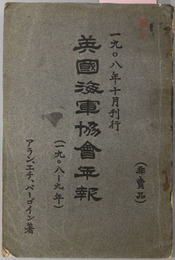 一九〇八年十月刊行
英國海軍協會年報
(一九〇八―九年)
(非賣品)
アランエチ、バーゴイン著